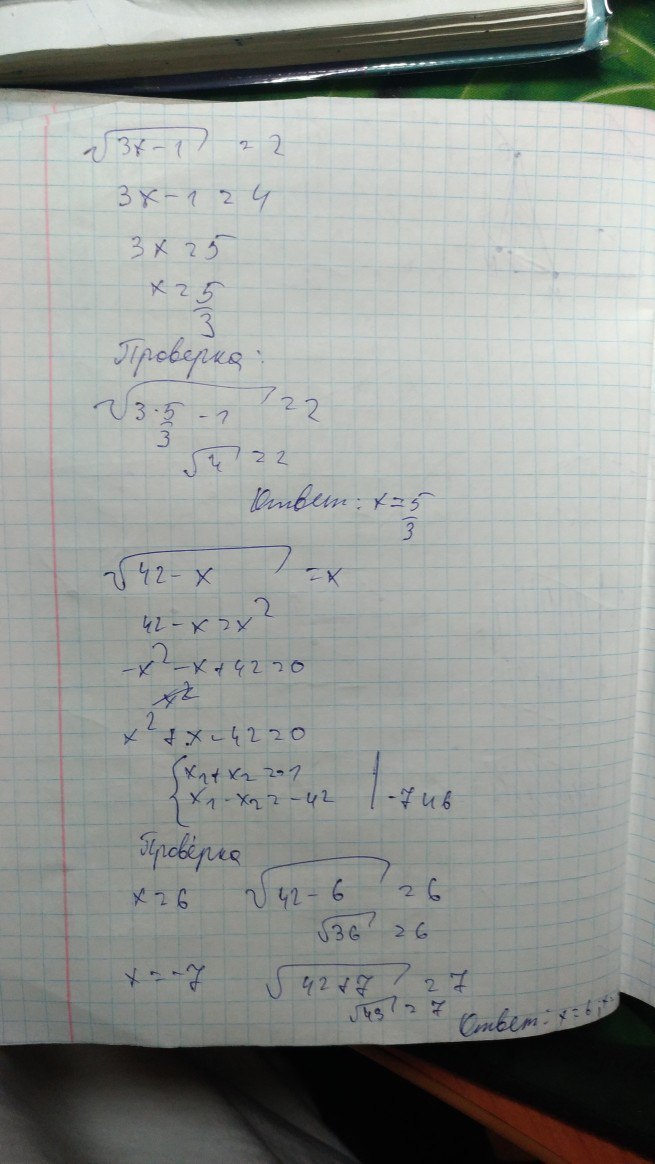 √3x-1 = 2
3x-1 = 4
3x = 5
x = 5/3
Проверка:
√3·5/3 - 1 = 2
√4 = 2
Ответ: x = 5/3
√42-x = x
42-x = x²
-x²-x+42=0
x²+x-42=0
{x₁+x₂=-1
x₁·x₂=-42 | -7 и 6
Проверка
x=6 √42-6 = 6
√36 = 6
x=-7 √42+7 = 7
√49 = 7
Ответ: x=6;